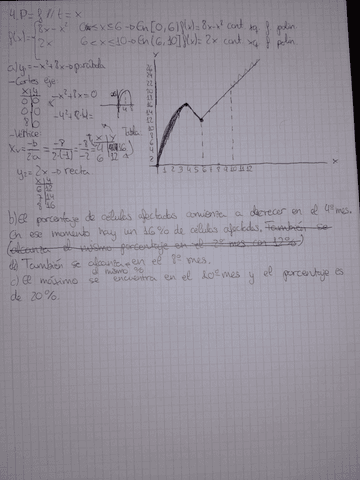 4. P = f // t = x
f(x) = 8x - x² 0 ≤ x ≤ 6 → En [0, 6] f(x) = 8x - x² cont xq f polin
2x 6 < x ≤ 10 → En (6, 10] f(x) = 2x cont xq f polin
a) y = -x² + 8x → parábola
- Cortes eje
x | y
0 | 0
0 | 0
8 | 0
-x² + 8x = 0
- Vértice:
Xv = -b/2a = -8/2·(-1) = -8/-2 = 4
x | y
4 | 16
6 | 12
Tabla
y = 2x → recta
x | y
6 | 12
7 | 14
8 | 16
y
x
1 2 3 4 5 6 7 8 9 10 11 12
b) El porcentaje de células afectadas comienza a decrecer en el 4º mes.
En ese momento hay un 16% de células afectadas. También se
alcanza el mismo porcentaje en el mes con 12%
d) También se alcanza el mismo % en el 8º mes.
c) El máximo se encuentra en el 10º mes y el porcentaje es
de 20%.